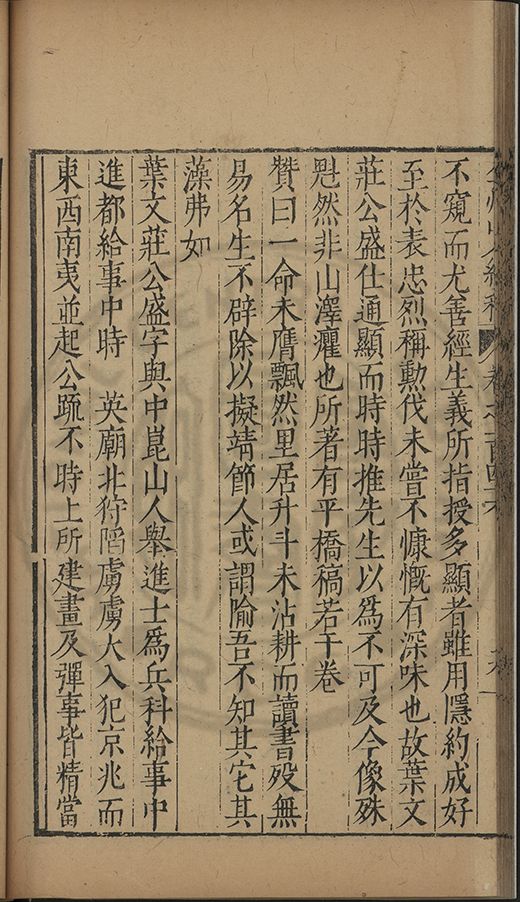 弇州山人續稿 卷之一百四十六
不窺而尤善經生義所指授多顯者雖用隱約成好
至於表忠烈稱勳伐未嘗不慷慨有深味也故葉文
莊公盛仕通顯而時時推先生以爲不可及今像殊
魁然非山澤癯也所著有平橋稿若干卷
贊曰一命未膺飄然里居升斗未沾耕而讀書歿無
易名生不辟除以擬靖節人或謂隃吾不知其它其
藻弗如
葉文莊公盛字與中崑山人舉進士爲兵科給事中
進都給事中時 英廟北狩陷虜虜大入犯京兆而
東西南夷並起公疏不時上所建畫及彈事皆精當